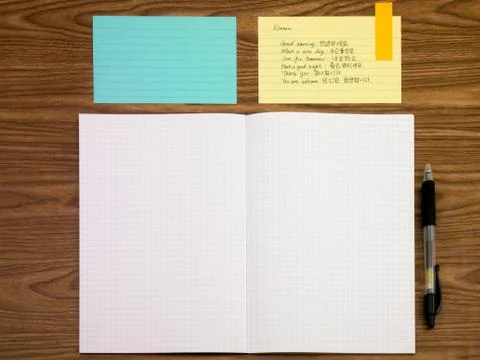 Korean
Good morning : 안녕하세요
Have a nice day : 좋은하루
See you tomorrow : 내일봐요
Have a good night : 좋은 밤되세요
Thank you : 감사합니다
You are welcome : 당신은 환영합니다.